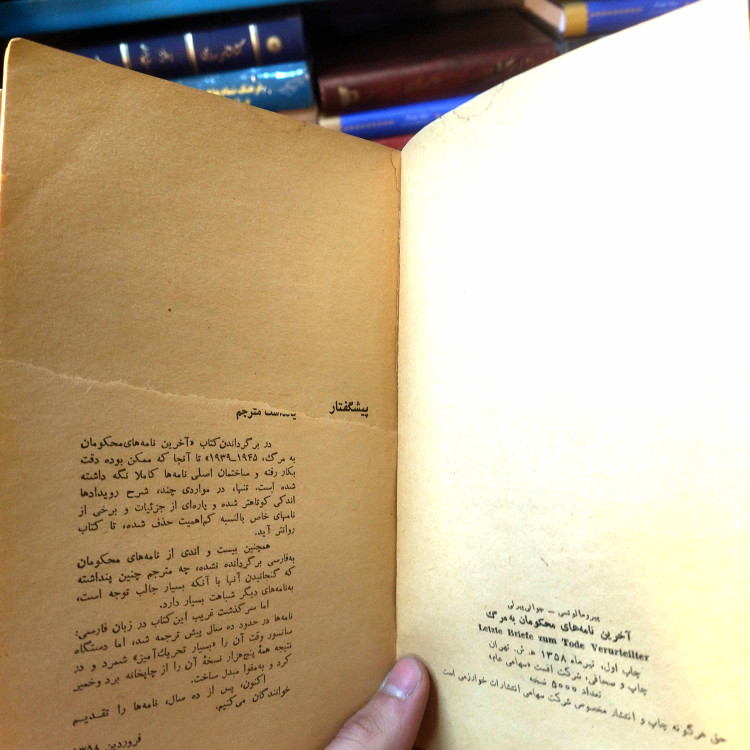 پیرو مالوتسی ــ جوانی پیرلی
آخرین نامه‌های محکومان به مرگ
Letzte Briefe zum Tode Verurteilter
چاپ اول، تیرماه ۱۳۵۸ ه. ش. تهران
چاپ و صحافی، شرکت افست «سهامی عام»
تعداد ۵۰۰۰ نسخه
حق هرگونه چاپ و انتشار مخصوص شرکت سهامی انتشارات خوارزمی است
پیشگفتار
یادداشت مترجم
در برگرداندن کتاب «آخرین نامه‌های محکومان
به مرگ، ۱۹۴۵-۱۹۳۹» تا آنجا که ممکن بوده دقت
بکار رفته و ساختمان اصلی نامه‌ها کاملا نگه داشته
شده است. تنها، در مواردی چند، شرح رویدادها
اندکی کوتاهتر شده و پاره‌ای از جزئیات و برخی از
نامهای خاص بالنسبه کم‌اهمیت حذف شده، تا کتاب
روانتر آید.
همچنین بیست و اندی از نامه‌های محکومان
به‌فارسی برگردانده نشده، چه مترجم چنین پنداشته
که گنجانیدن آنها با آنکه بسیار جالب توجه است،
به‌نامه‌های دیگر شباهت بسیار دارد.
اما سرگذشت غریب این کتاب در زبان فارسی:
نامه‌ها در حدود ده سال پیش ترجمه شد، اما دستگاه
سانسور وقت آن را «بسیار تحریک‌آمیز» شمرد و در
نتیجه همهٔ پنج‌هزار نسخهٔ آن را از چاپخانه برد و خمیر
کرد و به‌مقوا مبدل ساخت.
اکنون، پس از ده سال، نامه‌ها را تقدیم
خوانندگان می‌کنیم.
فروردین ۱۳۵۸